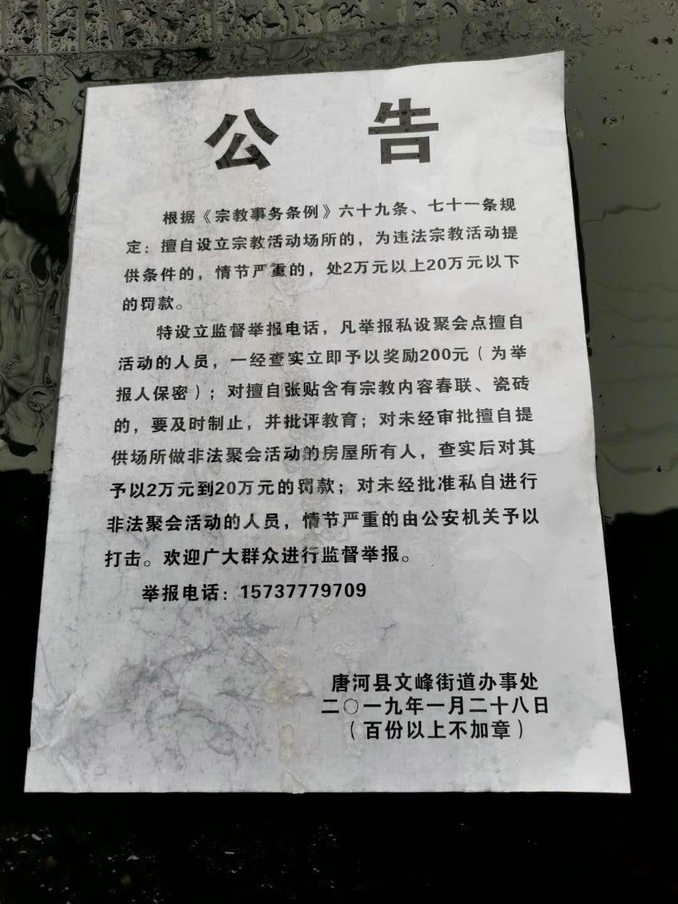 公告
根据《宗教事务条例》六十九条、七十一条规
定：擅自设立宗教活动场所的，为违法宗教活动提
供条件的，情节严重的，处2万元以上20万元以下
的罚款。
特设立监督举报电话，凡举报私设聚会点擅自
活动的人员，一经查实立即予以奖励200元（为举
报人保密）；对擅自张贴含有宗教内容春联、瓷砖
的，要及时制止，并批评教育；对未经审批擅自提
供场所做非法聚会活动的房屋所有人，查实后对其
予以2万元到20万元的罚款；对未经批准私自进行
非法聚会活动的人员，情节严重的由公安机关予以
打击。欢迎广大群众进行监督举报。
举报电话：15737779709
唐河县文峰街道办事处
二〇一九年一月二十八日
（百份以上不加章）